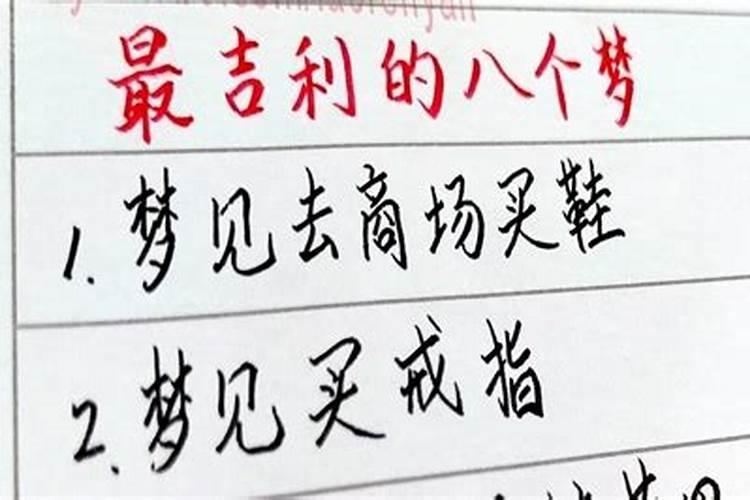 最吉利的八个梦
1.梦见去商场买鞋
2.梦见买戒指